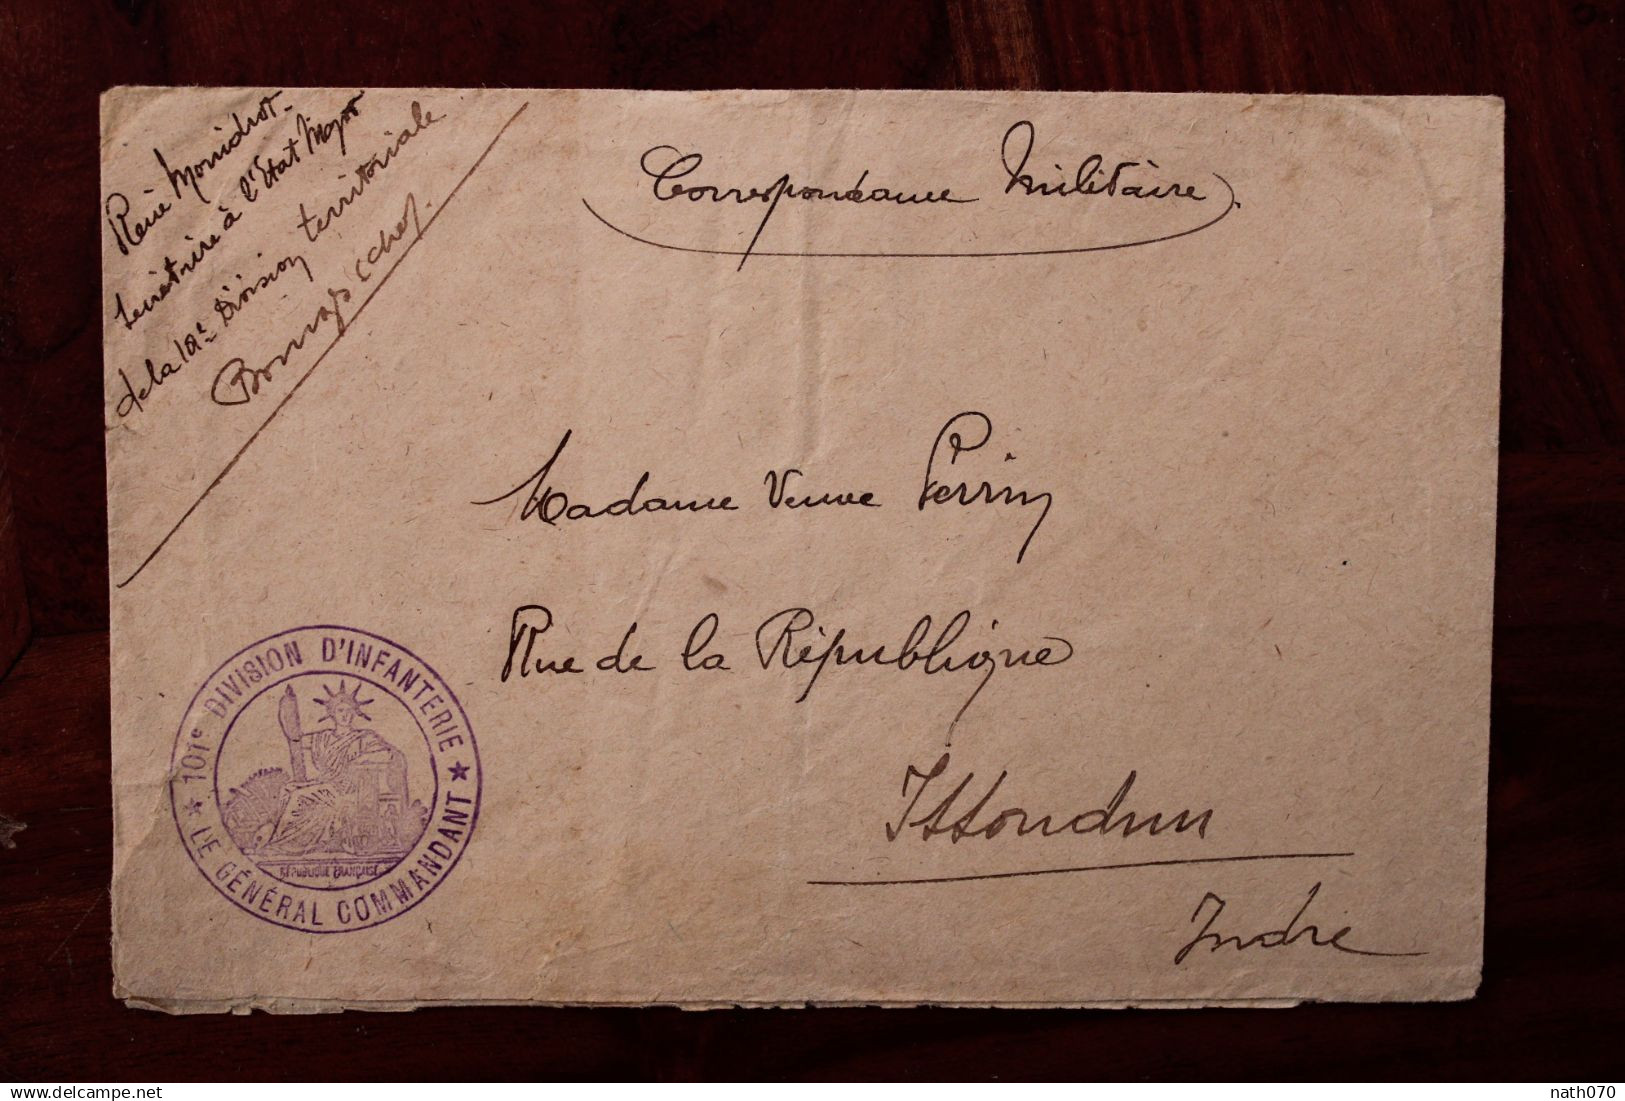 René Monidrot
à l'Etat Major
de la 101e Division territoriale
Bourges (cher).
Correspondance Militaire
Madame Veuve Perrin
Rue de la République
Issoudun
Indre
101e DIVISION D'INFANTERIE
LE GÉNÉRAL COMMANDANT
RÉPUBLIQUE FRANÇAISE
delcampe.net
nath070